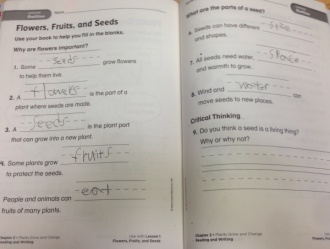 Flowers, Fruits, and Seeds
Use your book to help you fill in the blanks.
Why are flowers important?
1. Some seeds grow flowers
to help them live.
2. A flowers is the part of a
plant where seeds are made.
3. A seeds is the plant part
that can grow into a new plant.
4. Some plants grow fruits
to protect the seeds.
People and animals can eat
fruits of many plants.
Use with Lesson 1
Flowers, Fruits, and Seeds
Reading and Writing
What are the parts of a seed?
6. Seeds can have different
and shapes.
7. All seeds need water,
and warmth to grow.
8. Wind and water can
move seeds to new places.
Critical Thinking
9. Do you think a seed is a living thing?
Why or why not?
Chapter 2 • Plants Grow and Change
Reading and Writing